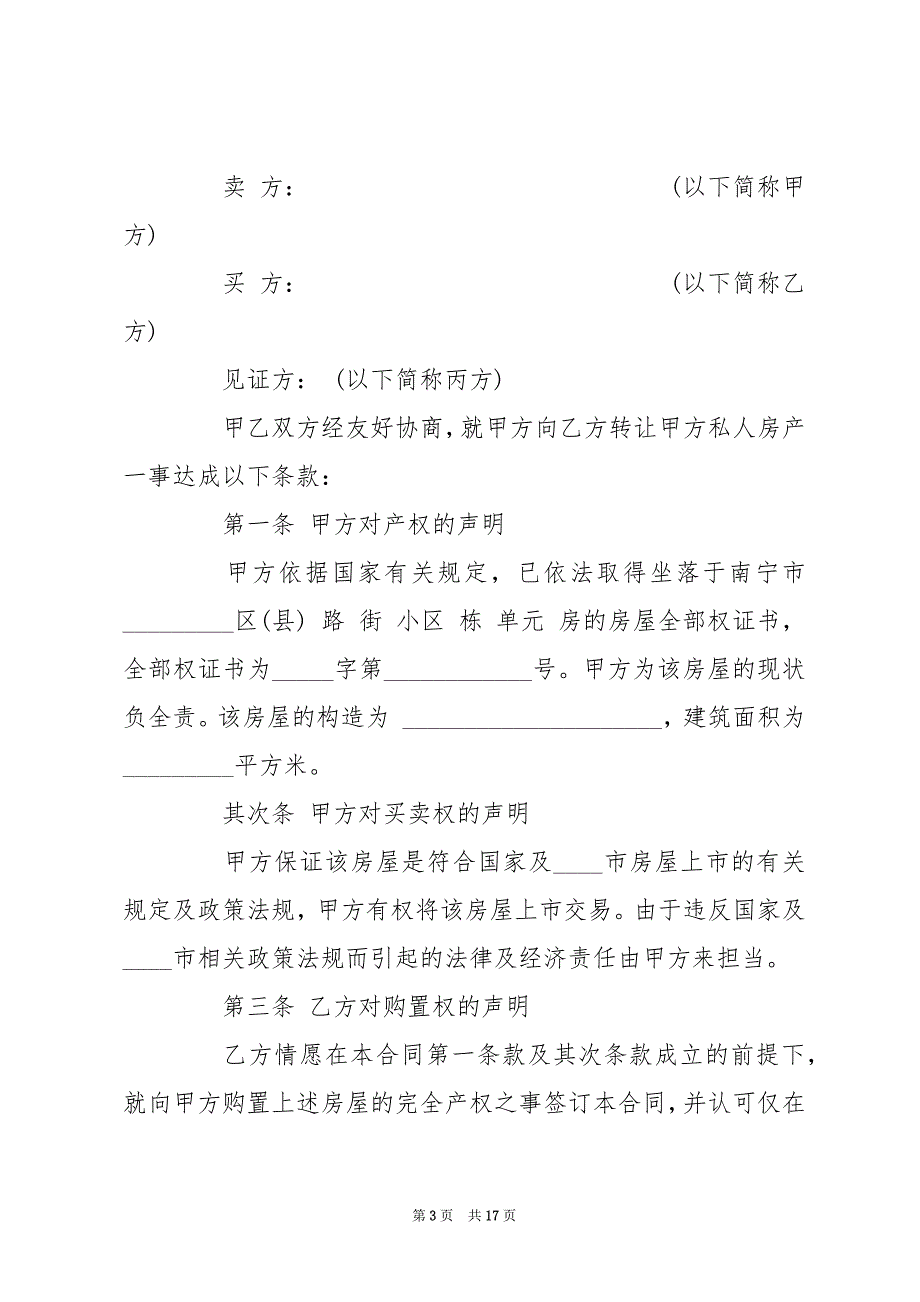 卖 方： (以下简称甲
方)
买 方： (以下简称乙
方)
见证方： (以下简称丙方)
甲乙双方经友好协商，就甲方向乙方转让甲方私人房产
一事达成以下条款：
第一条 甲方对产权的声明
甲方依据国家有关规定，已依法取得坐落于南宁市
_________区(县) 路 街 小区 栋 单元 房的房屋全部权证书，
全部权证书为_____字第____________号。甲方为该房屋的现状
负全责。该房屋的构造为 _____________________，建筑面积为
_________平方米。
其次条 甲方对买卖权的声明
甲方保证该房屋是符合国家及____市房屋上市的有关
规定及政策法规，甲方有权将该房屋上市交易。由于违反国家及
____市相关政策法规而引起的法律及经济责任由甲方来担当。
第三条 乙方对购置权的声明
乙方情愿在本合同第一条款及其次条款成立的前提下，
就向甲方购置上述房屋的完全产权之事签订本合同，并认可仅在
第 3 页 共 17 页